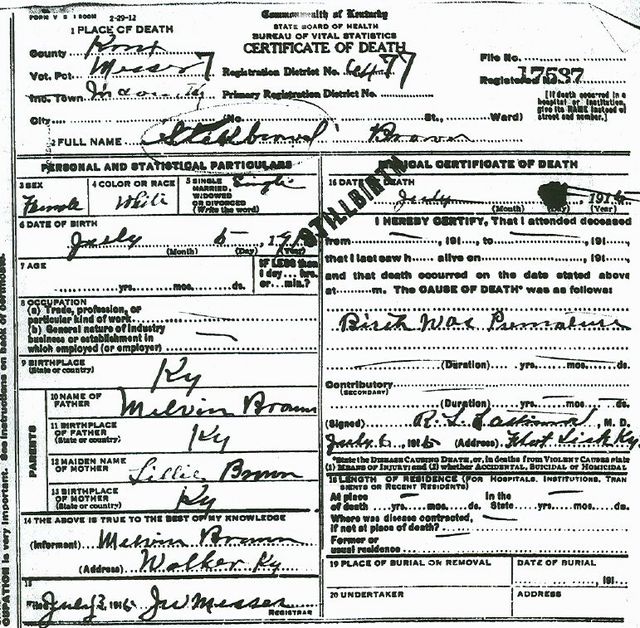 FORM V S 1 2-29-12
Commonwealth of Kentucky
STATE BOARD OF HEALTH
BUREAU OF VITAL STATISTICS
CERTIFICATE OF DEATH
1 PLACE OF DEATH
County Knox
Vot. Pct. Messer 7
Registration District No. 6477
File No.
17587
Registered No.
Inc. Town
Primary Registration District No.
[If death occurred in a hospital or institution, give its NAME instead of street and number.]
City (No. St., Ward)
2 FULL NAME Stillborn Brown
PERSONAL AND STATISTICAL PARTICULARS
3 SEX
Female
4 COLOR OR RACE
White
5 SINGLE, MARRIED, WIDOWED OR DIVORCED (Write the word)
Single
6 DATE OF BIRTH
July 6, 191
(Month) (Day) (Year)
7 AGE
yrs. mos. ds.
IF LESS than 1 day... hrs. or... min.?
8 OCCUPATION
(a) Trade, profession, or particular kind of work
(b) General nature of industry business or establishment in which employed (or employer)
9 BIRTHPLACE
(State or country)
Ky
PARENTS
10 NAME OF FATHER
Melvin Brown
11 BIRTHPLACE OF FATHER
(State or country)
Ky
12 MAIDEN NAME OF MOTHER
Lillie Brown
13 BIRTHPLACE OF MOTHER
(State or country)
Ky
14 THE ABOVE IS TRUE TO THE BEST OF MY KNOWLEDGE
(Informant) Melvin Brown
(Address) Walker Ky
15
Filed July 191 Messer
REGISTRAR
STILLBIRTH
MEDICAL CERTIFICATE OF DEATH
16 DATE OF DEATH
July 191
(Month) (Day) (Year)
I HEREBY CERTIFY, That I attended deceased
from 191 to 191
that I last saw h alive on 191
and that death occurred on the date stated above
at m. The CAUSE OF DEATH* was as follows:
Birth Was Premature
(Duration) yrs. mos. ds.
Contributory
(SECONDARY)
(Duration) yrs. mos. ds.
(Signed) R. L. M. D.
July 6, 191 (Address) Flat Lick Ky
*State the DISEASE CAUSING DEATH, or, in deaths from VIOLENT CAUSES state
(1) MEANS OF INJURY; and (2) whether ACCIDENTAL, SUICIDAL or HOMICIDAL
18 LENGTH OF RESIDENCE (FOR HOSPITALS, INSTITUTIONS, TRANSIENTS OR RECENT RESIDENTS)
At place of death yrs. mos. ds.
In the State yrs. mos. ds.
Where was disease contracted, if not at place of death?
Former or usual residence
19 PLACE OF BURIAL OR REMOVAL
DATE OF BURIAL
191
20 UNDERTAKER
ADDRESS
OCCUPATION is very important. See instructions on back of certificate.